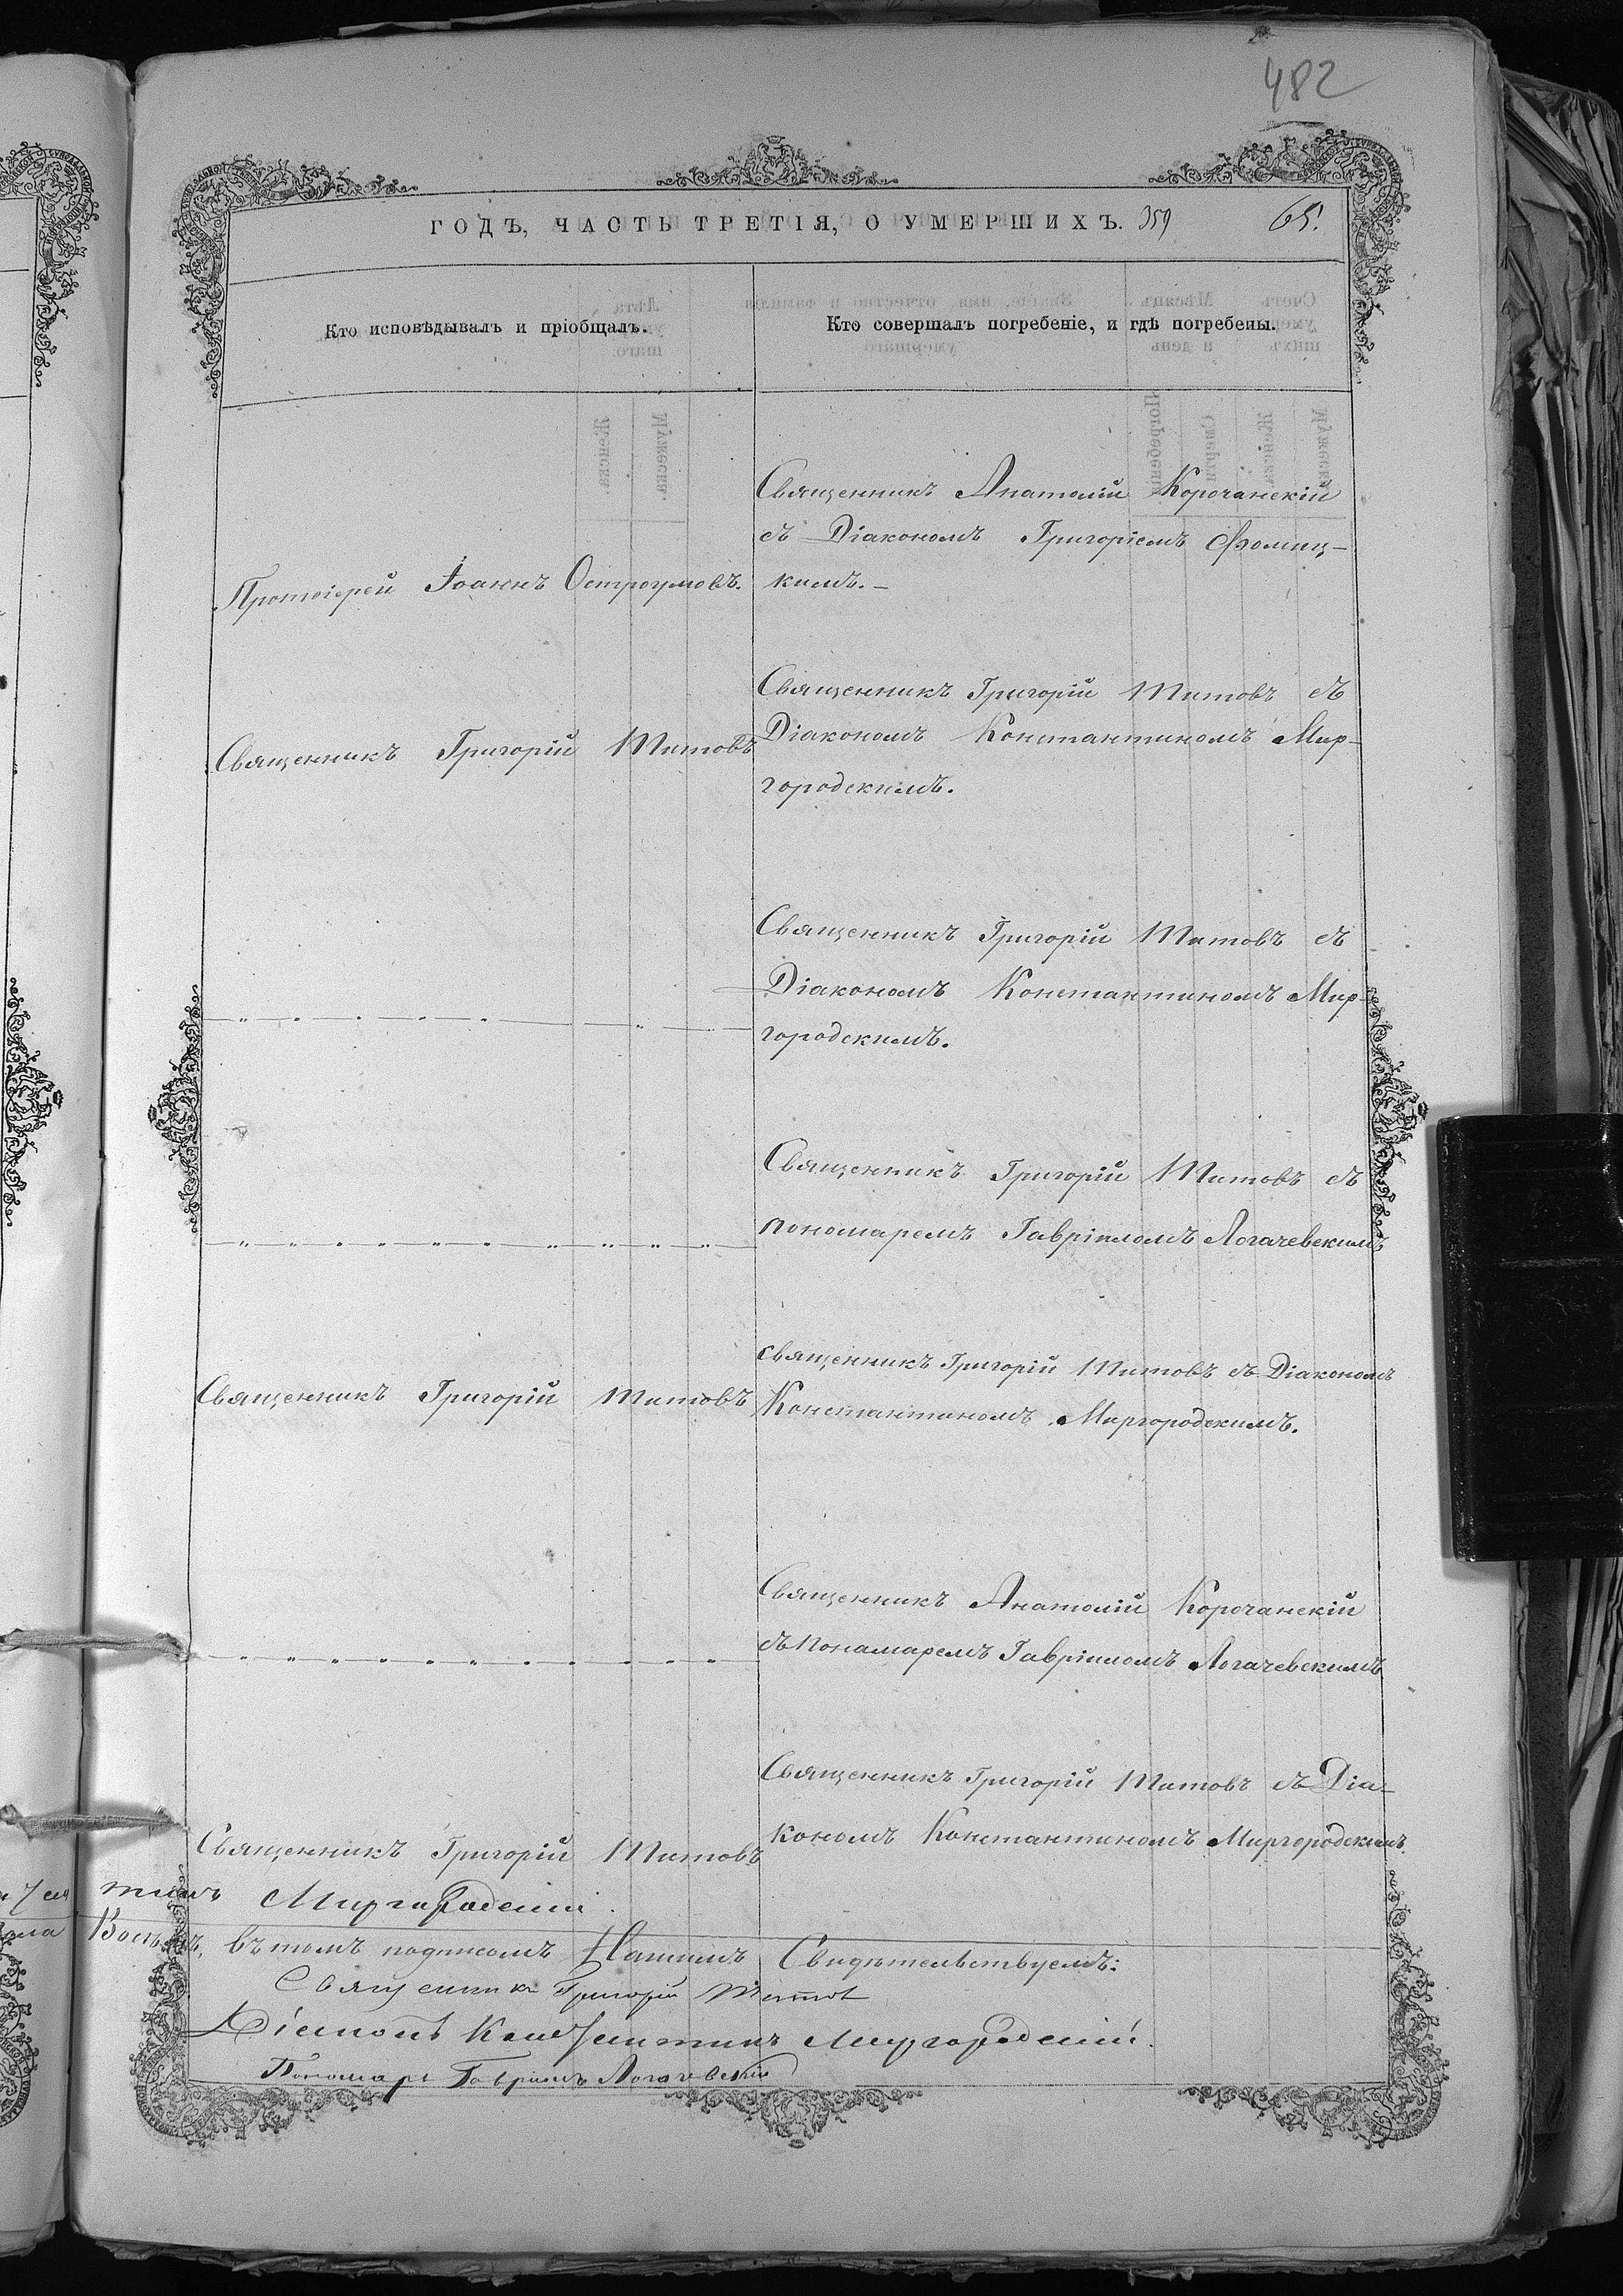 482
ГОДЪ, ЧАСТЬ ТРЕТІЯ, О УМЕРШИХЪ. 359 65.
Кто исповѣдывалъ и пріобщалъ.
Кто совершалъ погребеніе, и гдѣ погребены.
Протоіерей Іоаннъ Остроумовъ.
Священникъ Анатолій Корочанскій
съ Діакономъ Григоріемъ Фомиц-
кимъ.
Священникъ Григорій Титовъ
Священникъ Григорій Титовъ съ
Діакономъ Константиномъ Мир-
городскимъ.
Священникъ Григорій Титовъ съ
Діакономъ Константиномъ Мир-
городскимъ.
Священникъ Григорій Титовъ съ
пономаремъ Гавріиломъ Логачевскимъ
Священникъ Григорій Титовъ
священникъ Григорій Титовъ съ Діакономъ
Константиномъ Миргородскимъ.
Священникъ Анатолій Корочанскій
съ Понамаремъ Гавріиломъ Логачевскимъ
Священникъ Григорій Титовъ
Священникъ Григорій Титовъ съ Діа-
кономъ Константиномъ Миргородскимъ.
тинъ Миргородскій.
въ томъ подписомъ Нашимъ Свидѣтельствуемъ:
Священникъ Григорій Титовъ
Діаконъ Константинъ Миргородскій.
Пономарь Гавріилъ Логачевскій